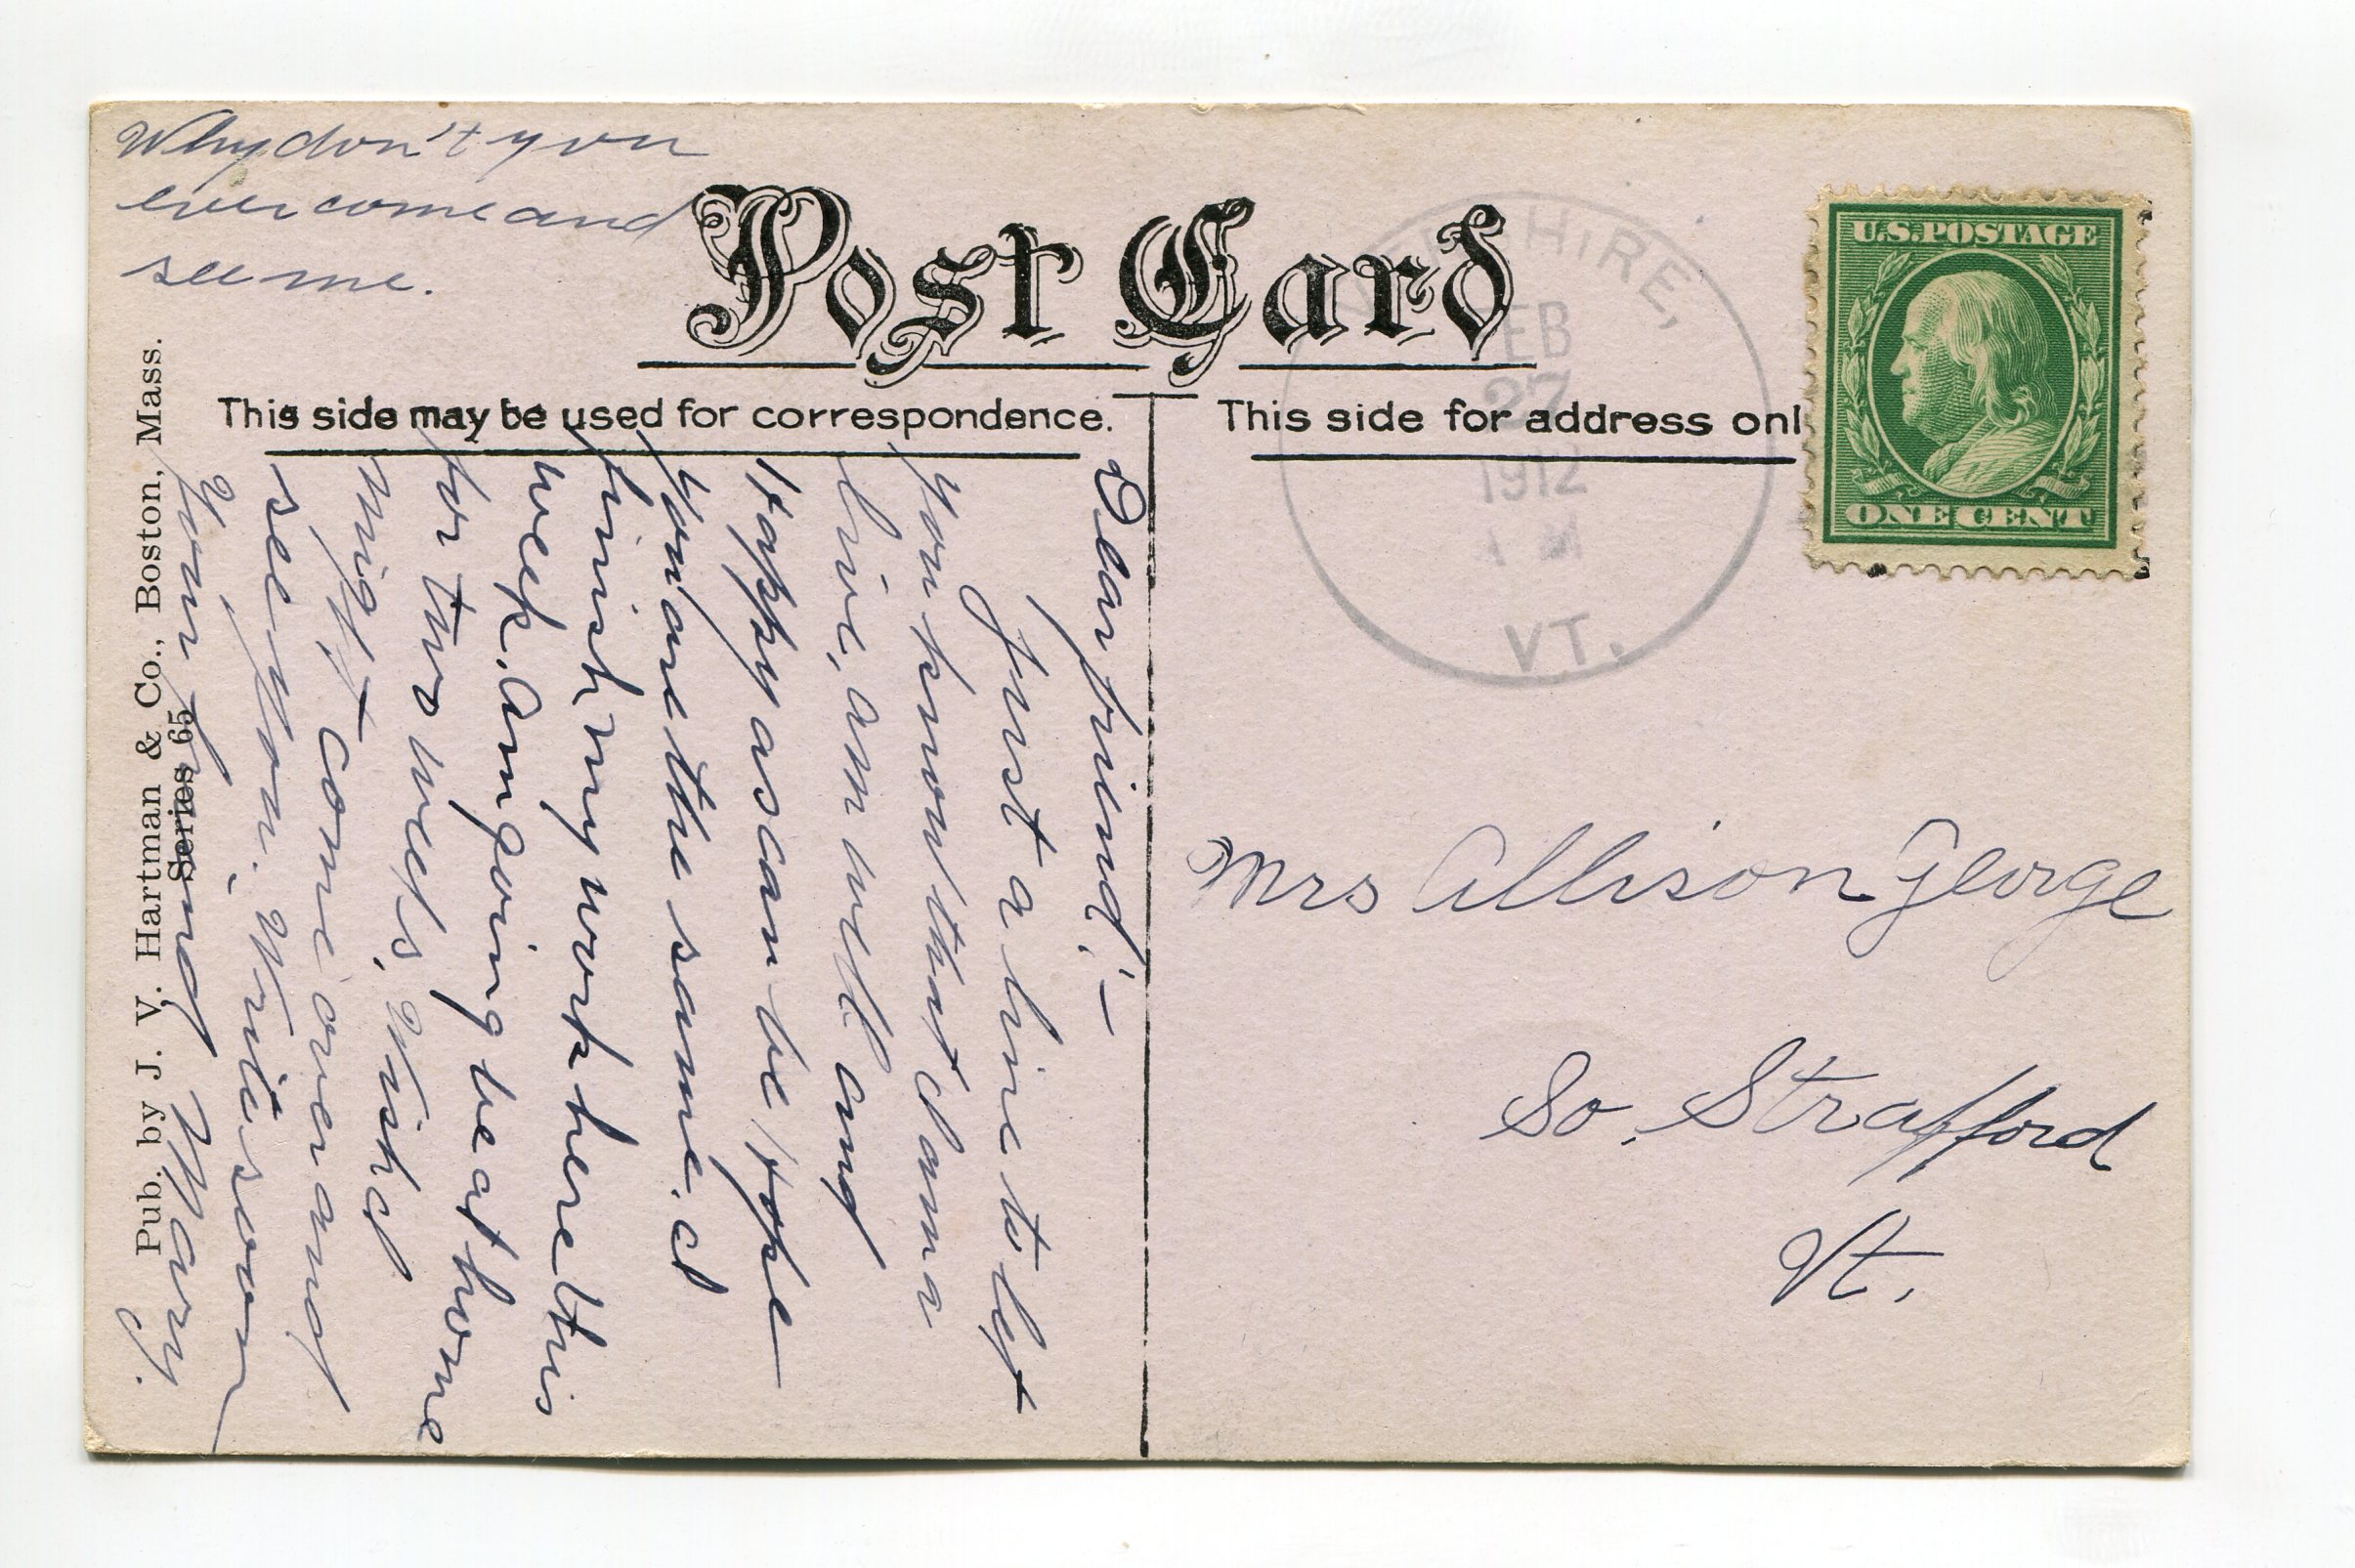 Why don't you
ever come and
see me.
Post Card
This side may be used for correspondence.
This side for address onl
Dear friend:—
Just a line to let
you know that I am a
live, am well and
Happy as can be Hope
you are the same. I
finish my work here this
week. Am going be at home
for two weeks, Wish I
might come over and
see you. Write soon
Your friend Mary.
Pub. by J. V. Hartman & Co., Boston, Mass.
Series 65
HIRE,
EB
27
1912
M
VT.
U.S. POSTAGE
ONE CENT
Mrs Allison George
So. Strafford
Vt.